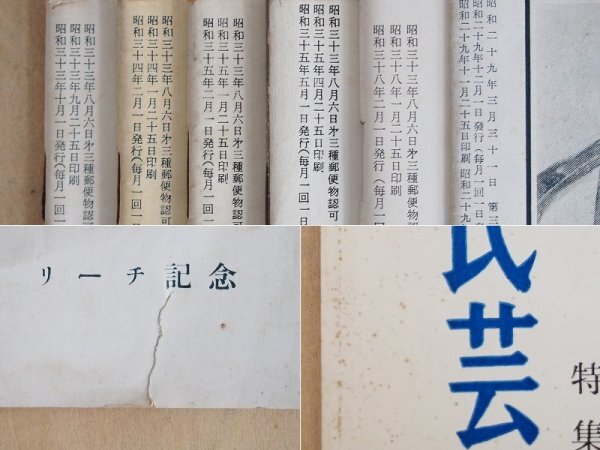 昭和三十三年八月六日㐧三種郵便物認可
昭和三十三年九月二十五日印刷
昭和三十三年十月一日発行(毎月一回一
昭和三十三年八月六日㐧三種郵便物認可
昭和三十四年一月二十五日印刷
昭和三十四年二月一日発行(毎月一回一日
昭和三十三年八月六日㐧三種郵便物認可
昭和三十五年一月二十五日印刷
昭和三十五年二月一日発行(毎月一回一
昭和三十三年八月六日㐧三種郵便物認可
昭和三十五年四月二十五日印刷
昭和三十五年五月一日発行(毎月一回一
昭和三十三年八月六日㐧三種郵便物認可
昭和三十八年七月二十五日印刷
昭和三十八年八月一日発行(毎月一回一
昭和二十九年三月三十一日 第三
昭和二十九年十二月一日發行(毎月一回一日發
昭和二十九年十一月二十五日印刷 昭和二十九
リーチ記念
民芸
特集